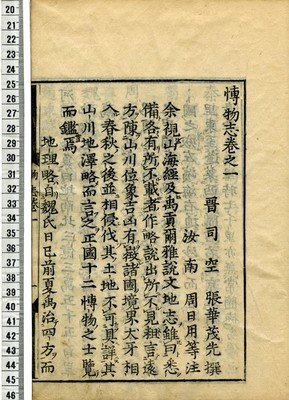 博物志卷之一
晋司空張華茂先撰
汝南周日用等注
余視山海經及禹貢爾雅說文地志雖曰悉
備各有所不載者作略說出所不見粗言遠
方陳山川位象吉凶有徴諸國境界犬牙相
入春秋之後並相侵伐其土地不可具詳其
山川地澤略而言之正國十二博物之士覽
而鑑焉
地理略自魏氏日已前夏禹治四方而
20
21
22
23
24
25
26
27
28
29
30
31
32
33
34
35
36
37
38
39
40
41
42
43
44
45
46